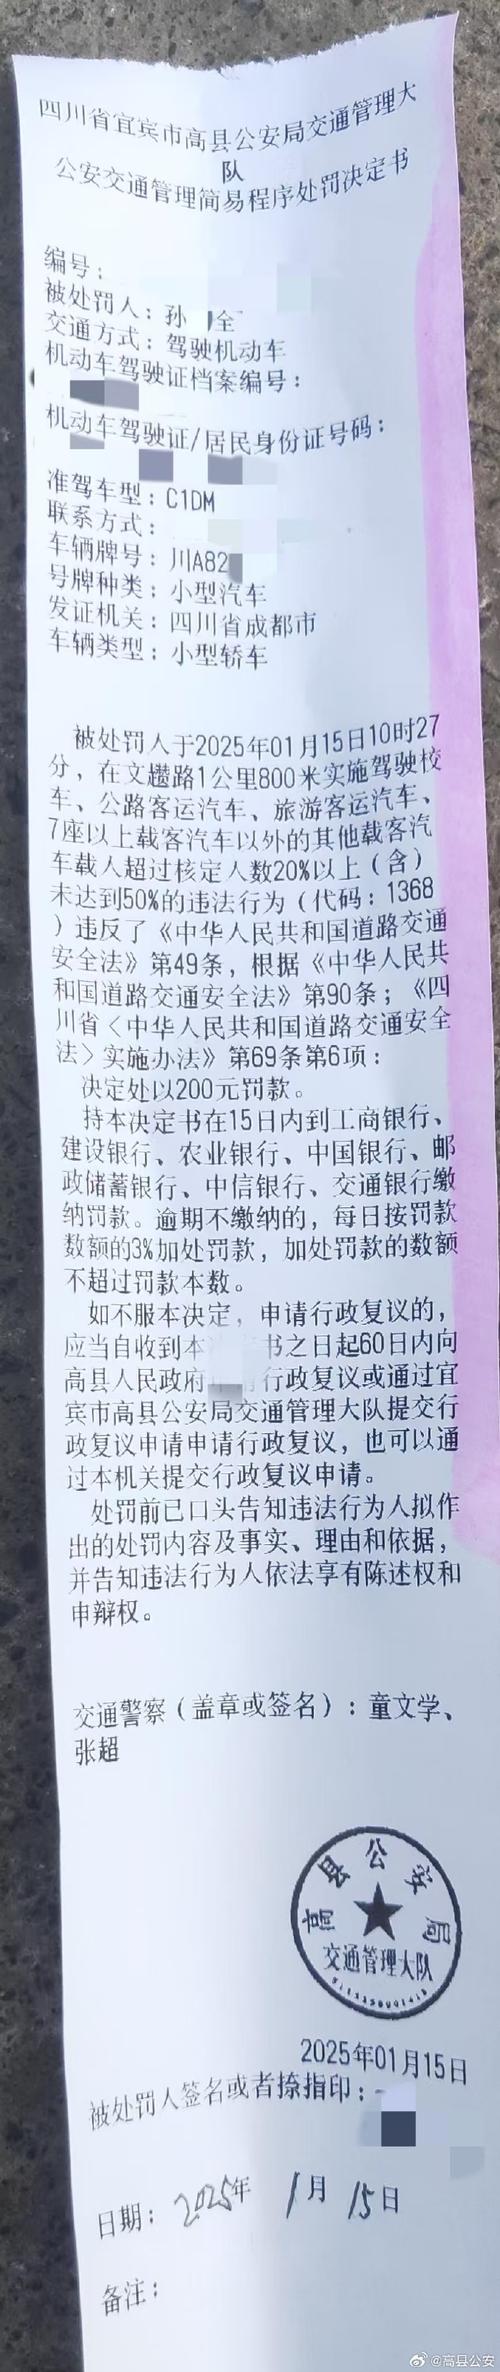 四川省宜宾市高县公安局交通管理大
队
公安交通管理简易程序处罚决定书
编号：
被处罚人：孙 全
交通方式：驾驶机动车
机动车驾驶证档案编号：
机动车驾驶证/居民身份证号码：
准驾车型：C1DM
联系方式：
车辆牌号：川A82
号牌种类：小型汽车
发证机关：四川省成都市
车辆类型：小型轿车
被处罚人于2025年01月15日10时27
分，在文趱路1公里800米实施驾驶校
车、公路客运汽车、旅游客运汽车、
7座以上载客汽车以外的其他载客汽
车载人超过核定人数20%以上（含）
未达到50%的违法行为（代码：1368
）违反了《中华人民共和国道路交通
安全法》第49条，根据《中华人民共
和国道路交通安全法》第90条；《四
川省〈中华人民共和国道路交通安全
法〉实施办法》第69条第6项：
决定处以200元罚款。
持本决定书在15日内到工商银行、
建设银行、农业银行、中国银行、邮
政储蓄银行、中信银行、交通银行缴
纳罚款。逾期不缴纳的，每日按罚款
数额的3%加处罚款，加处罚款的数额
不超过罚款本数。
如不服本决定，申请行政复议的，
应当自收到本 书之日起60日内向
高县人民政府 请行政复议或通过宜
宾市高县公安局交通管理大队提交行
政复议申请申请行政复议，也可以通
过本机关提交行政复议申请。
处罚前已口头告知违法行为人拟作
出的处罚内容及事实、理由和依据，
并告知违法行为人依法享有陈述权和
申辩权。
交通警察（盖章或签名）：童文学、
张超
高县公安局
交通管理大队
2025年01月15日
被处罚人签名或者捺指印：
日期：2025年 1月 15日
备注：
@高县公安